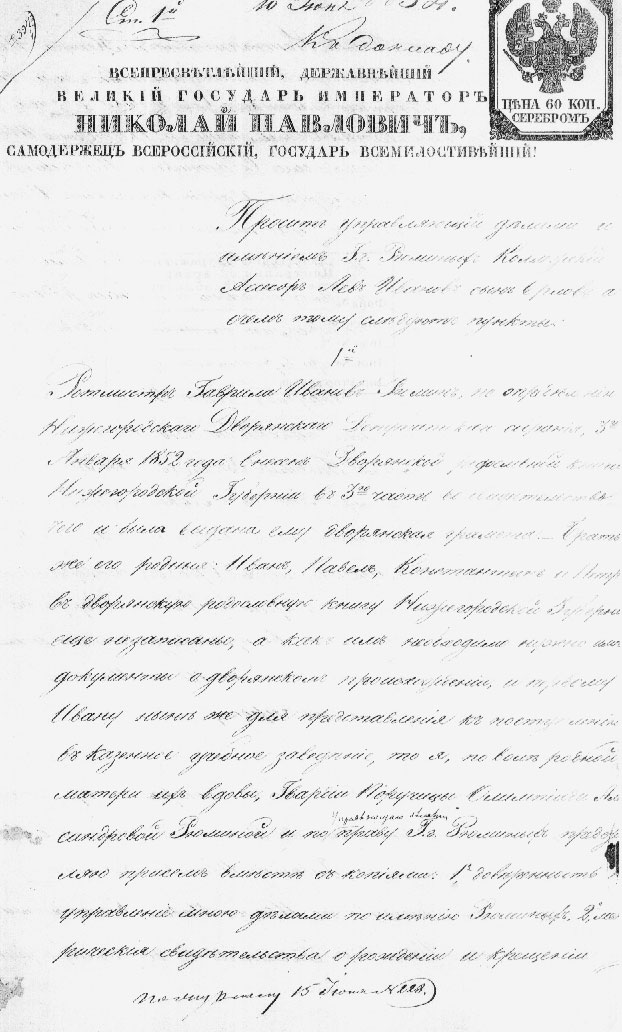 Ст. 1й
10 Июня
Къ докладу
ЦѢНА 60 КОП.
СЕРЕБРОМЪ
ВСЕПРЕСВѢТЛѢЙШІЙ, ДЕРЖАВНѢЙШІЙ
ВЕЛИКІЙ ГОСУДАРЬ ИМПЕРАТОРЪ
НИКОЛАЙ ПАВЛОВИЧЪ,
САМОДЕРЖЕЦЪ ВСЕРОССІЙСКІЙ, ГОСУДАРЬ ВСЕМИЛОСТИВѢЙШІЙ!
Проситъ управляющій дѣлами и
имѣніемъ Гг. Рюминыхъ Коллежскій
Асесоръ Левъ Ивановъ сынъ а
о чемъ тому слѣдуютъ пункты:
1й
Ротмистръ Гаврила Ивановъ Рюминъ, по опредѣленію
Нижегородскаго Дворянскаго Депутатскаго 3го
Января 1852 года внесенъ Дворянской родословной книги
Нижегородской Губерніи въ 3ю часть
чего и была выдана ему дворянская грамота. Братья
же его родные: Иванъ, Павелъ, Константинъ и Петръ
въ дворянскую родословную книгу Нижегородской Губерніи
еще незаписаны, а какъ имъ необходимо нужно имѣть
документы о дворянскомъ происхожденіи, и первому
Ивану нынѣ же для представленія къ поступленію
въ казенное учебное заведеніе, то я, по волѣ родной
матери ихъ вдовы, Гвардіи Поручицы Олимпіады Алек
сандровой Рюминой и по праву управляющаго дѣлами Гг. Рюминыхъ предъяв
ляю присемъ вмѣстѣ съ копіями: 1е, довѣренность
управленіе мною дѣлами по имѣнію Рюминыхъ. 2е, мет
рическія свидѣтельства о рожденіи и крещеніи
15 Іюня № 228.